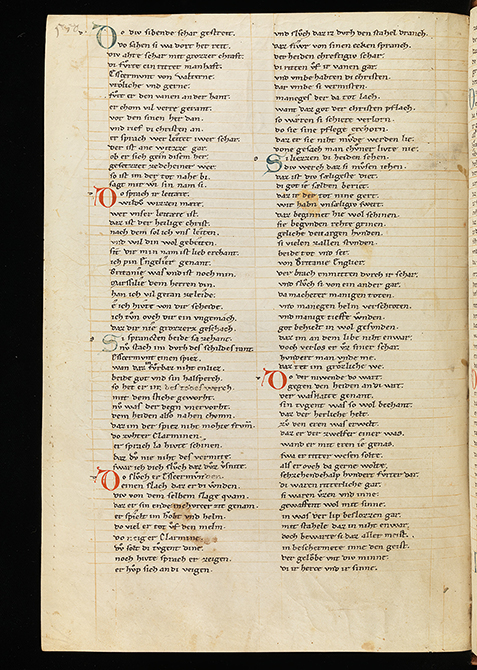 Do div sibende schar gestreit.
Do sahen si wa dort her reit.
Div ahte schar mit grozzer chraft.
Di fvrte ein ritter manhaft.
vrŏliche vnd gerne.
fvrt er den vanen an der hant.
er chom vil verre gerant.
vor den sinen her dan.
vnd rief di christen an.
er sprach wer leitet iwer schar.
der ist ane witzze gar.
ob er sich gein disem her.
gesetzzet ze deheiner wer.
so ist im der tot nahe bi.
sagt mir wi sin nam si.
Do sprach ir leitære.
wer vnser leitære ist.
daz ist der heilige christ.
nach dem sol ich vil leiten.
vnd wil din wol gebeiten.
sit dir min nam ist lieb erchant.
ich pin Engelier genant.
Britanie wal vnd ist noch min.
dem herren din.
han ich vil getan ze leide.
ich hivte von dir scheide.
ich tvn ovch dir ein vngemach.
daz dir nie grozzers geschach.
Si sprancten beide sa zehant.
nv stach im durh des schildes rant.
einen spiez.
beide got vnd sin halsperch.
so het er in des todes werch.
mit dem stiche geworht.
nv was der degen vnervorht.
dem heiden also nahen chomn.
daz im der spiez niht mohte frvmn.
do zuhter Clarminen.
er sprach la hivte schinen.
daz dv nie niht des vermite.
swar ich dich slvch daz dvz vsnite.
Do slvch er
einen slach daz er di wnden.
div von dem selben slage quam.
daz er sin ende
er spielt im hŏbt vnd helm.
do viel er tot vf den melm.
do neig er Clarmine.
dv solt di tvgent dine.
noch hivte sprach er zeigen.
er hvp sich an di veigen.
vnd slvch daz iz dvrh den stahel brach.
daz fiwr von sinen ecken sprach.
der heiden chreftigiv schar.
di riten vf ir vanen gar.
vnd vmbe habten di christen.
dar vmbe si vermisten.
maneger der da tot lach.
want dar got der christen pflach.
so wæren si schiere verlorn.
do sie sine pflege erchorn.
daz er sie niht mvde werden lie.
done gesach man chvner livte nie.
Si liezzen di heiden sehen.
div werch daz si mvsen iehen.
daz ist div sæligest diet.
di got ie sælden beriet.
daz iz der tot nine gert.
wir habn vnsæligiv swert.
daz beginnet hie wol schinen.
sie begvnden rehte grinen.
geliche
si vielen zallen stvnden.
beide tot vnd sêr.
von Britanie Englier.
der brach enmitten durch ir schar.
vnd slvch si von ein ander gar.
da machete er manigen toten.
vnd manegen helm verschroten.
vnd manige tieffe wnden.
got behielt in wol gesvnden.
daz im an dem libe niht enwar.
doch verlos er vz siner schar.
hvndert man vnde me.
daz tet im grŏzliche we.
Do der niwende do wart.
gegen den heiden an di vart.
der was Hatte genant.
sin tvgent was so wol bechant.
daz der herliche helt.
zv den eren was erwelt.
daz er der zwelfer einer was.
wand er mit eren ie genas.
swa er ritter wesen solte.
als er ovch da gerne wolte.
sehzzehendehalp hvndert fvrter dar.
di waren ritterliche gar.
si waren vzen vnd inne.
gewaffent wol mit sinne.
in was der lip beslozzen gar.
mit stahele daz in niht enwar.
doch bewarte si daz aller meist.
in beschermete inne den geist.
der gelŏbe vnt div minne.
di ir herce vnd ir sinne.